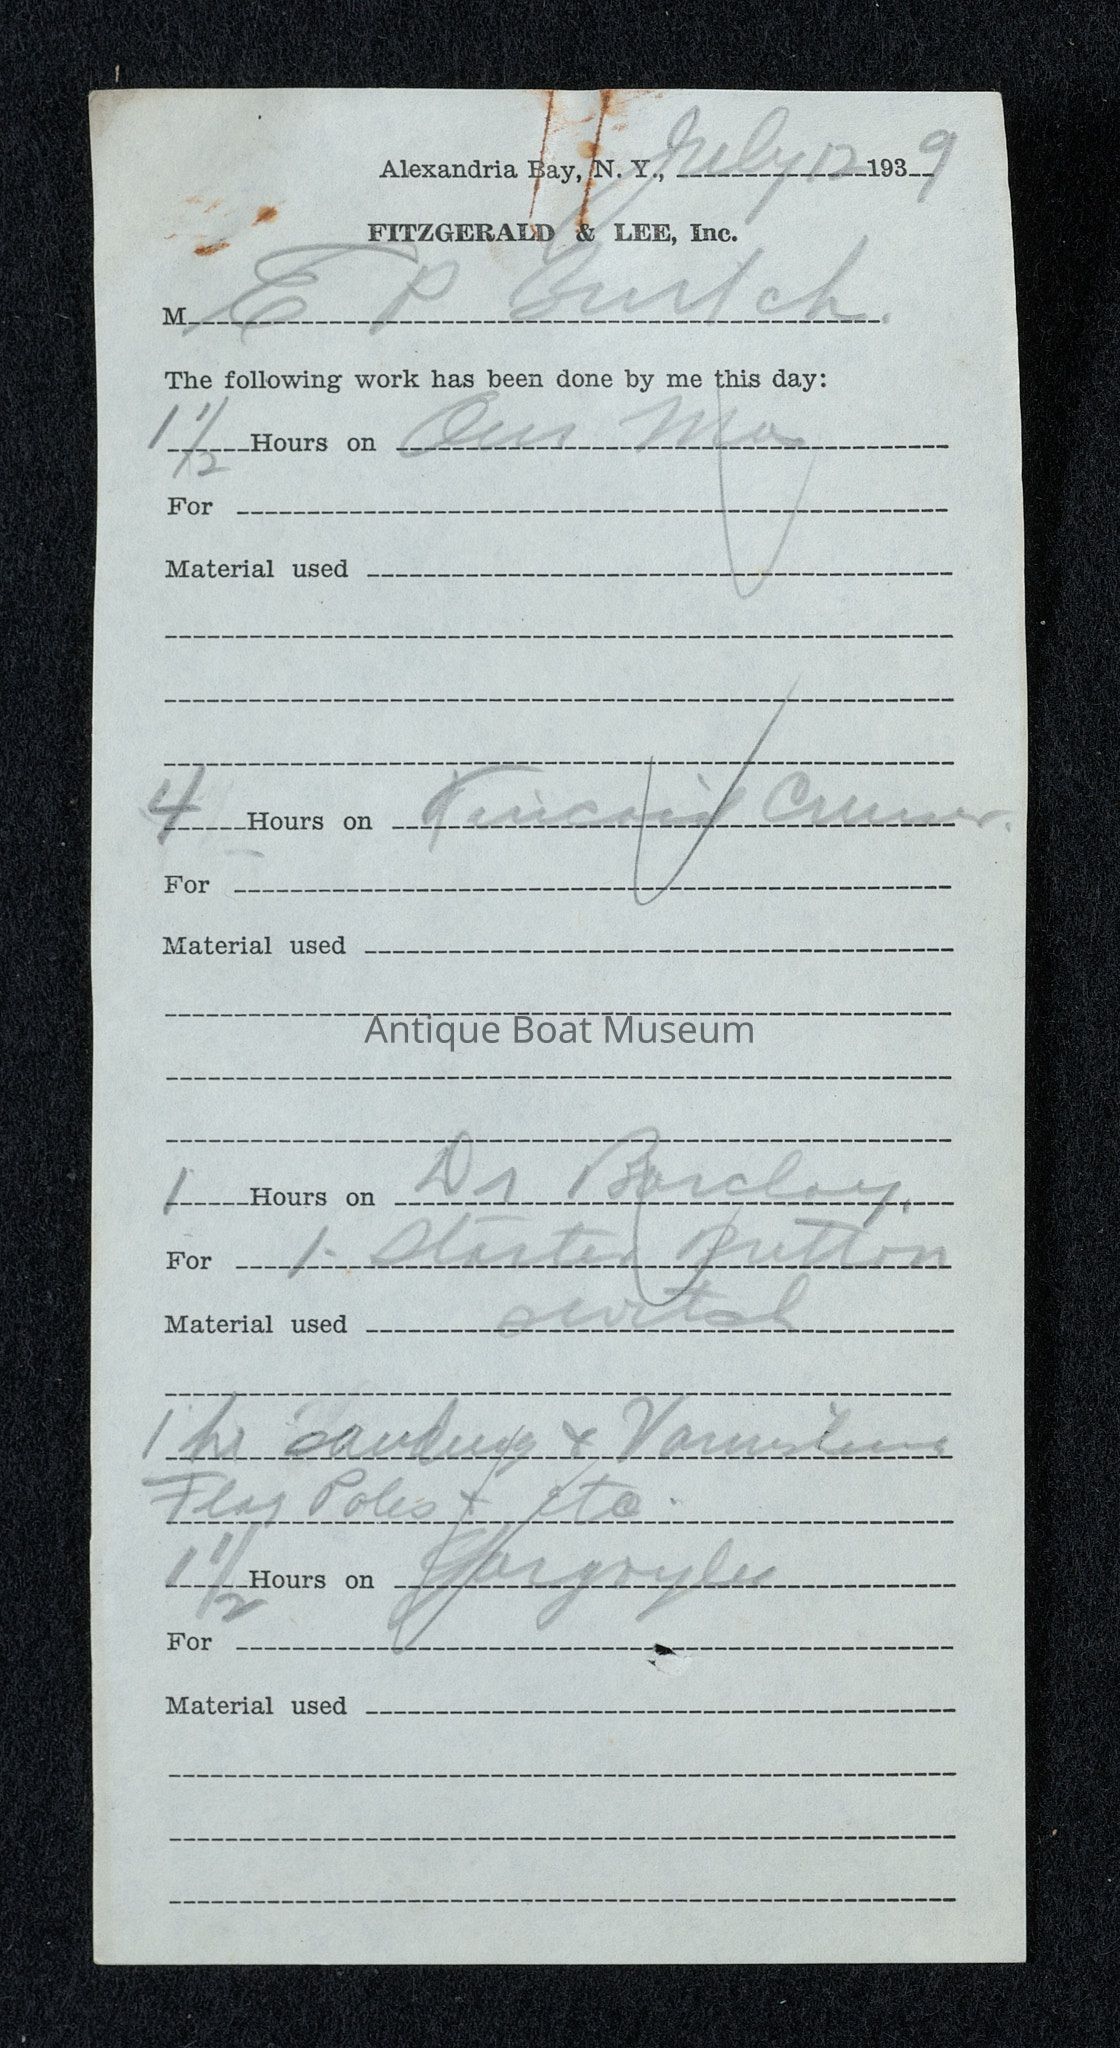 Alexandria Bay, N. Y., July 12 1939
FITZGERALD & LEE, Inc.
M E P Burtch.
The following work has been done by me this day:
1 1/2 Hours on Our Ma
For
Material used
4 Hours on Kincaid Cruiser.
For
Material used
Antique Boat Museum
1 Hours on Dr Barclay.
For 1- Starter Button
Material used switch
1 hr Sanding & Varnishing
Flag Poles & etc.
1 1/2 Hours on Gargoyles
For
Material used